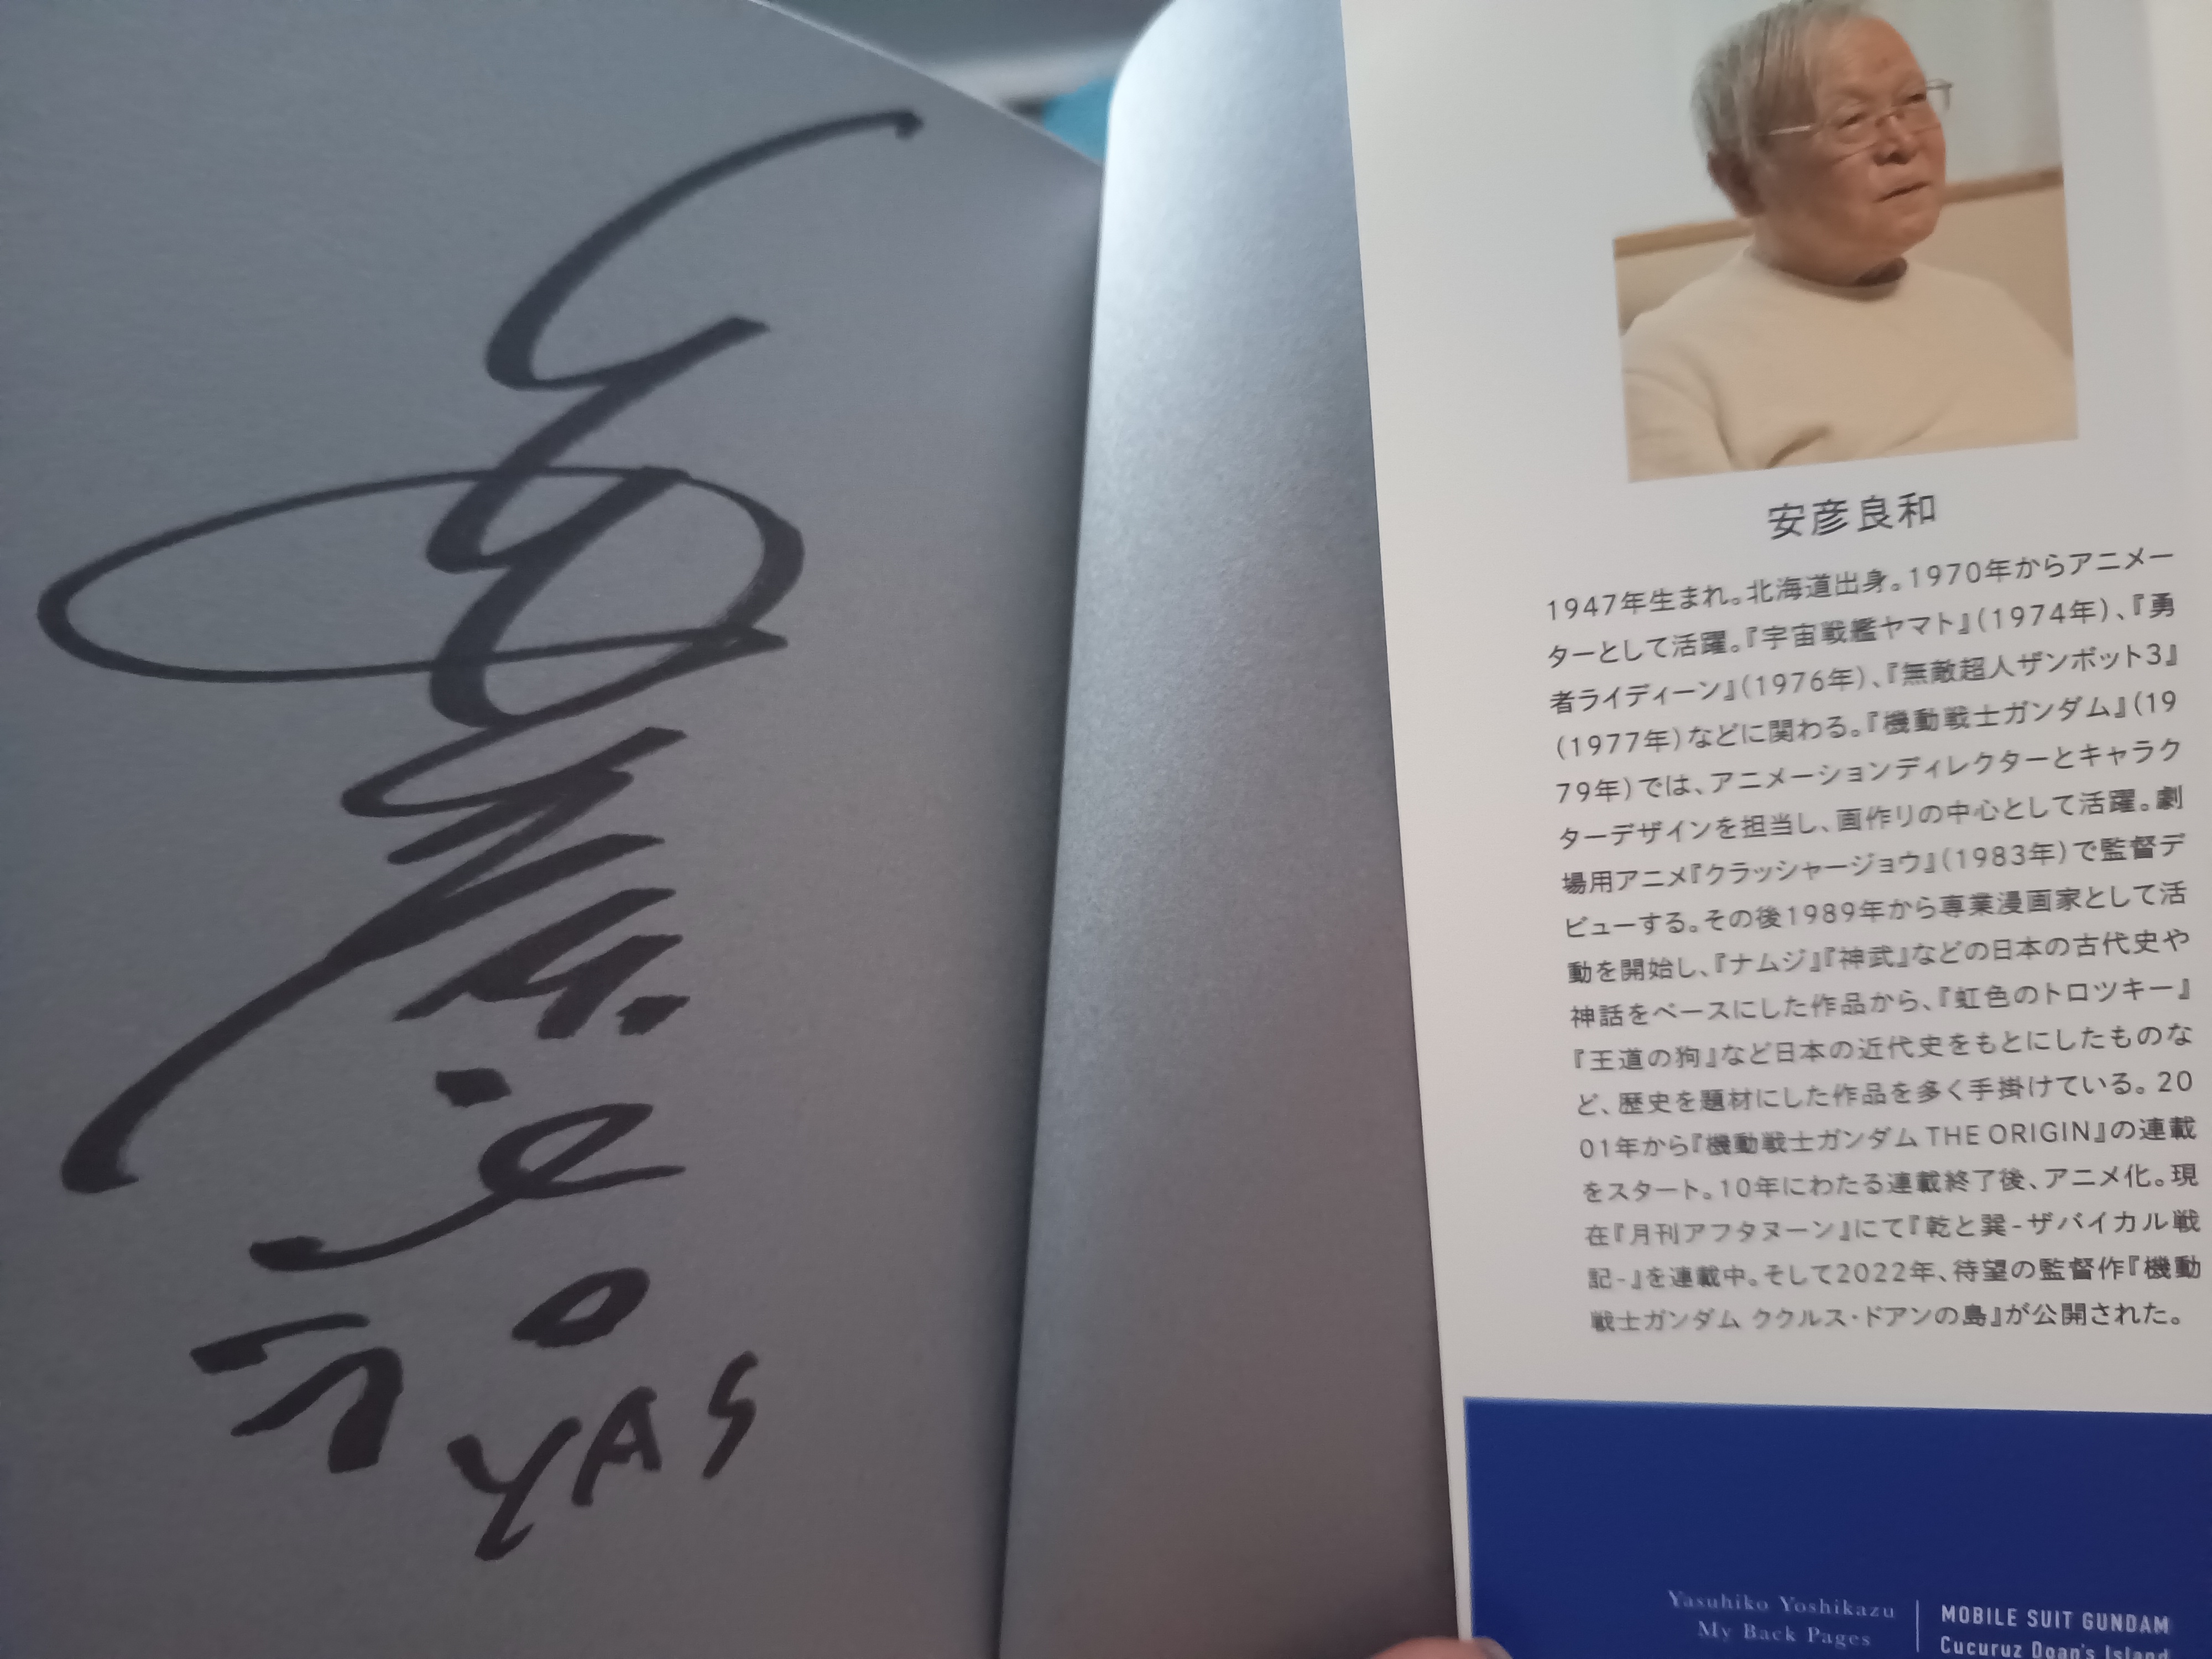 YAS
安彦良和
1947年生まれ。北海道出身。1970年からアニメー
ターとして活躍。『宇宙戦艦ヤマト』(1974年)、『勇
者ライディーン』(1976年)、『無敵超人ザンボット3』
(1977年)などに関わる。『機動戦士ガンダム』(19
79年)では、アニメーションディレクターとキャラク
ターデザインを担当し、画作りの中心として活躍。劇
場用アニメ『クラッシャージョウ』(1983年)で監督デ
ビューする。その後1989年から専業漫画家として活
動を開始し、『ナムジ』『神武』などの日本の古代史や
神話をベースにした作品から、『虹色のトロツキー』
『王道の狗』など日本の近代史をもとにしたものな
ど、歴史を題材にした作品を多く手掛けている。20
01年から『機動戦士ガンダム THE ORIGIN』の連載
をスタート。10年にわたる連載終了後、アニメ化。現
在『月刊アフタヌーン』にて『乾と巽-ザバイカル戦
記-』を連載中。そして2022年、待望の監督作『機動
戦士ガンダム ククルス・ドアンの島』が公開された。
Yasuhiko Yoshikazu
My Back Pages
MOBILE SUIT GUNDAM
Cucuruz Doan's Island